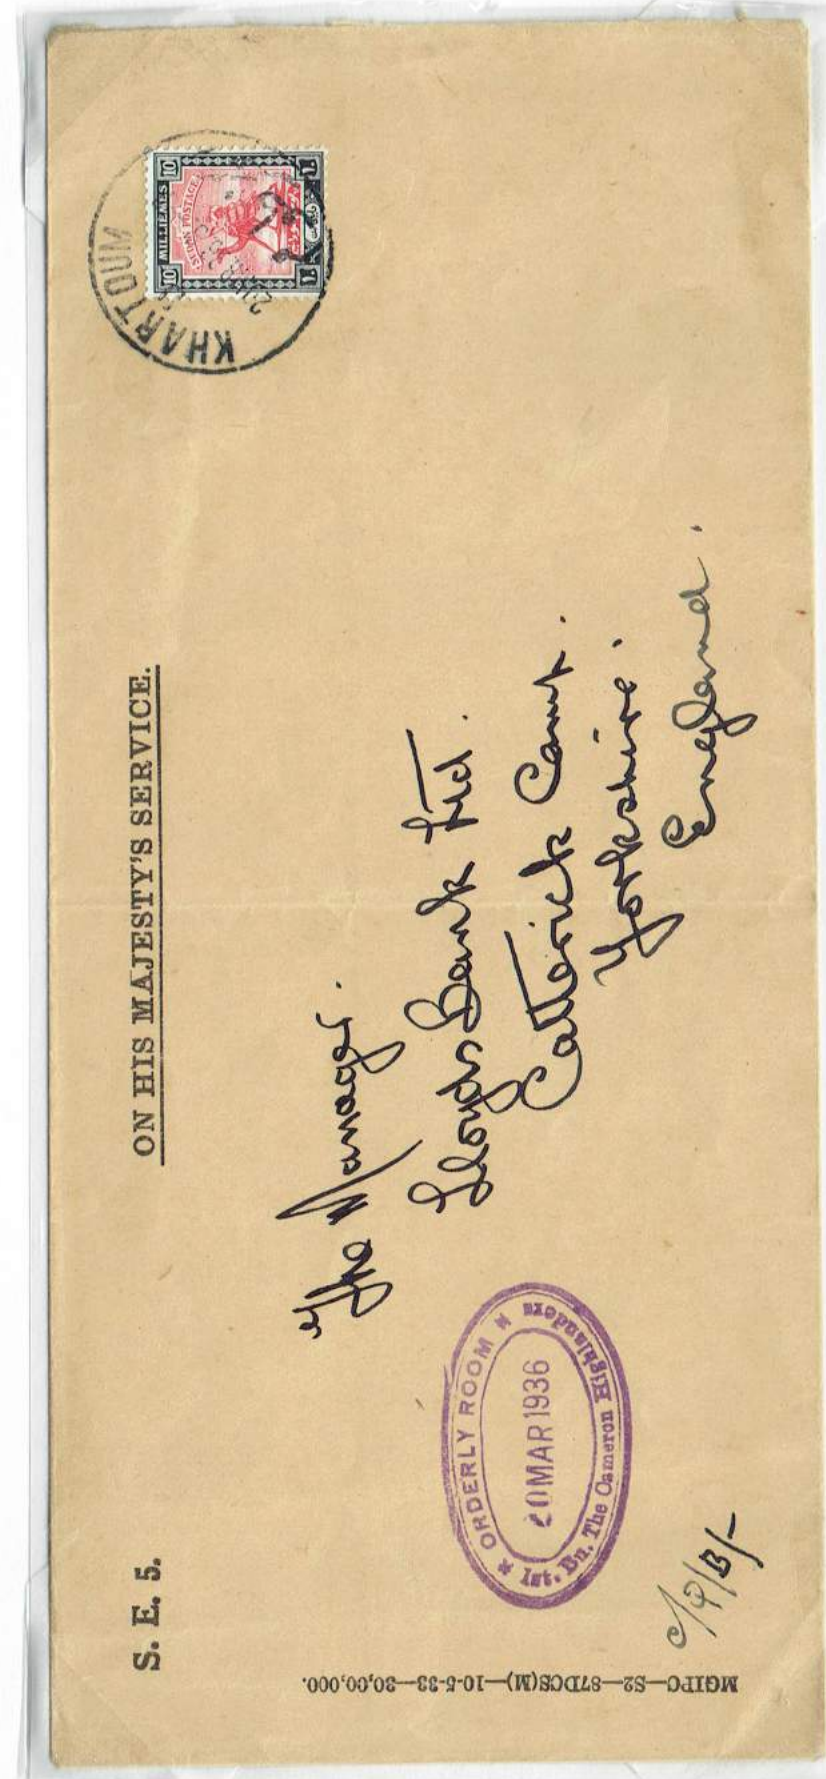 S. E. 5.
ON HIS MAJESTY'S SERVICE.
KHARTOUM
10 MILLIEMES 10
SUDAN POSTAGE
The Manager.
Lloyds Bank Ltd.
Catterick Camp.
Yorkshire.
England.
ORDERLY ROOM
20 MAR 1936
1st. Bn. The Cameron Highlanders
C/P/B/-
MGIPC—S2—87DCS(M)—10-5-33—30,00,000.